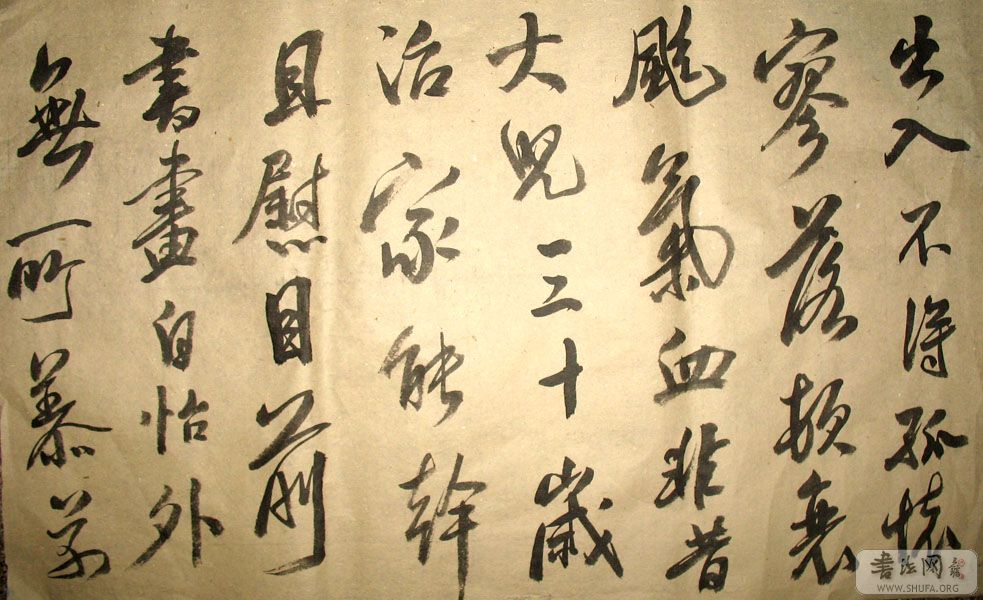 出入不得孤懷
寥落頓衰
颯氣血非昔
大兒三十歲
治家能幹
且慰目前
書畫自怡外
無所慕
書法网
WWW.SHUFA.ORG